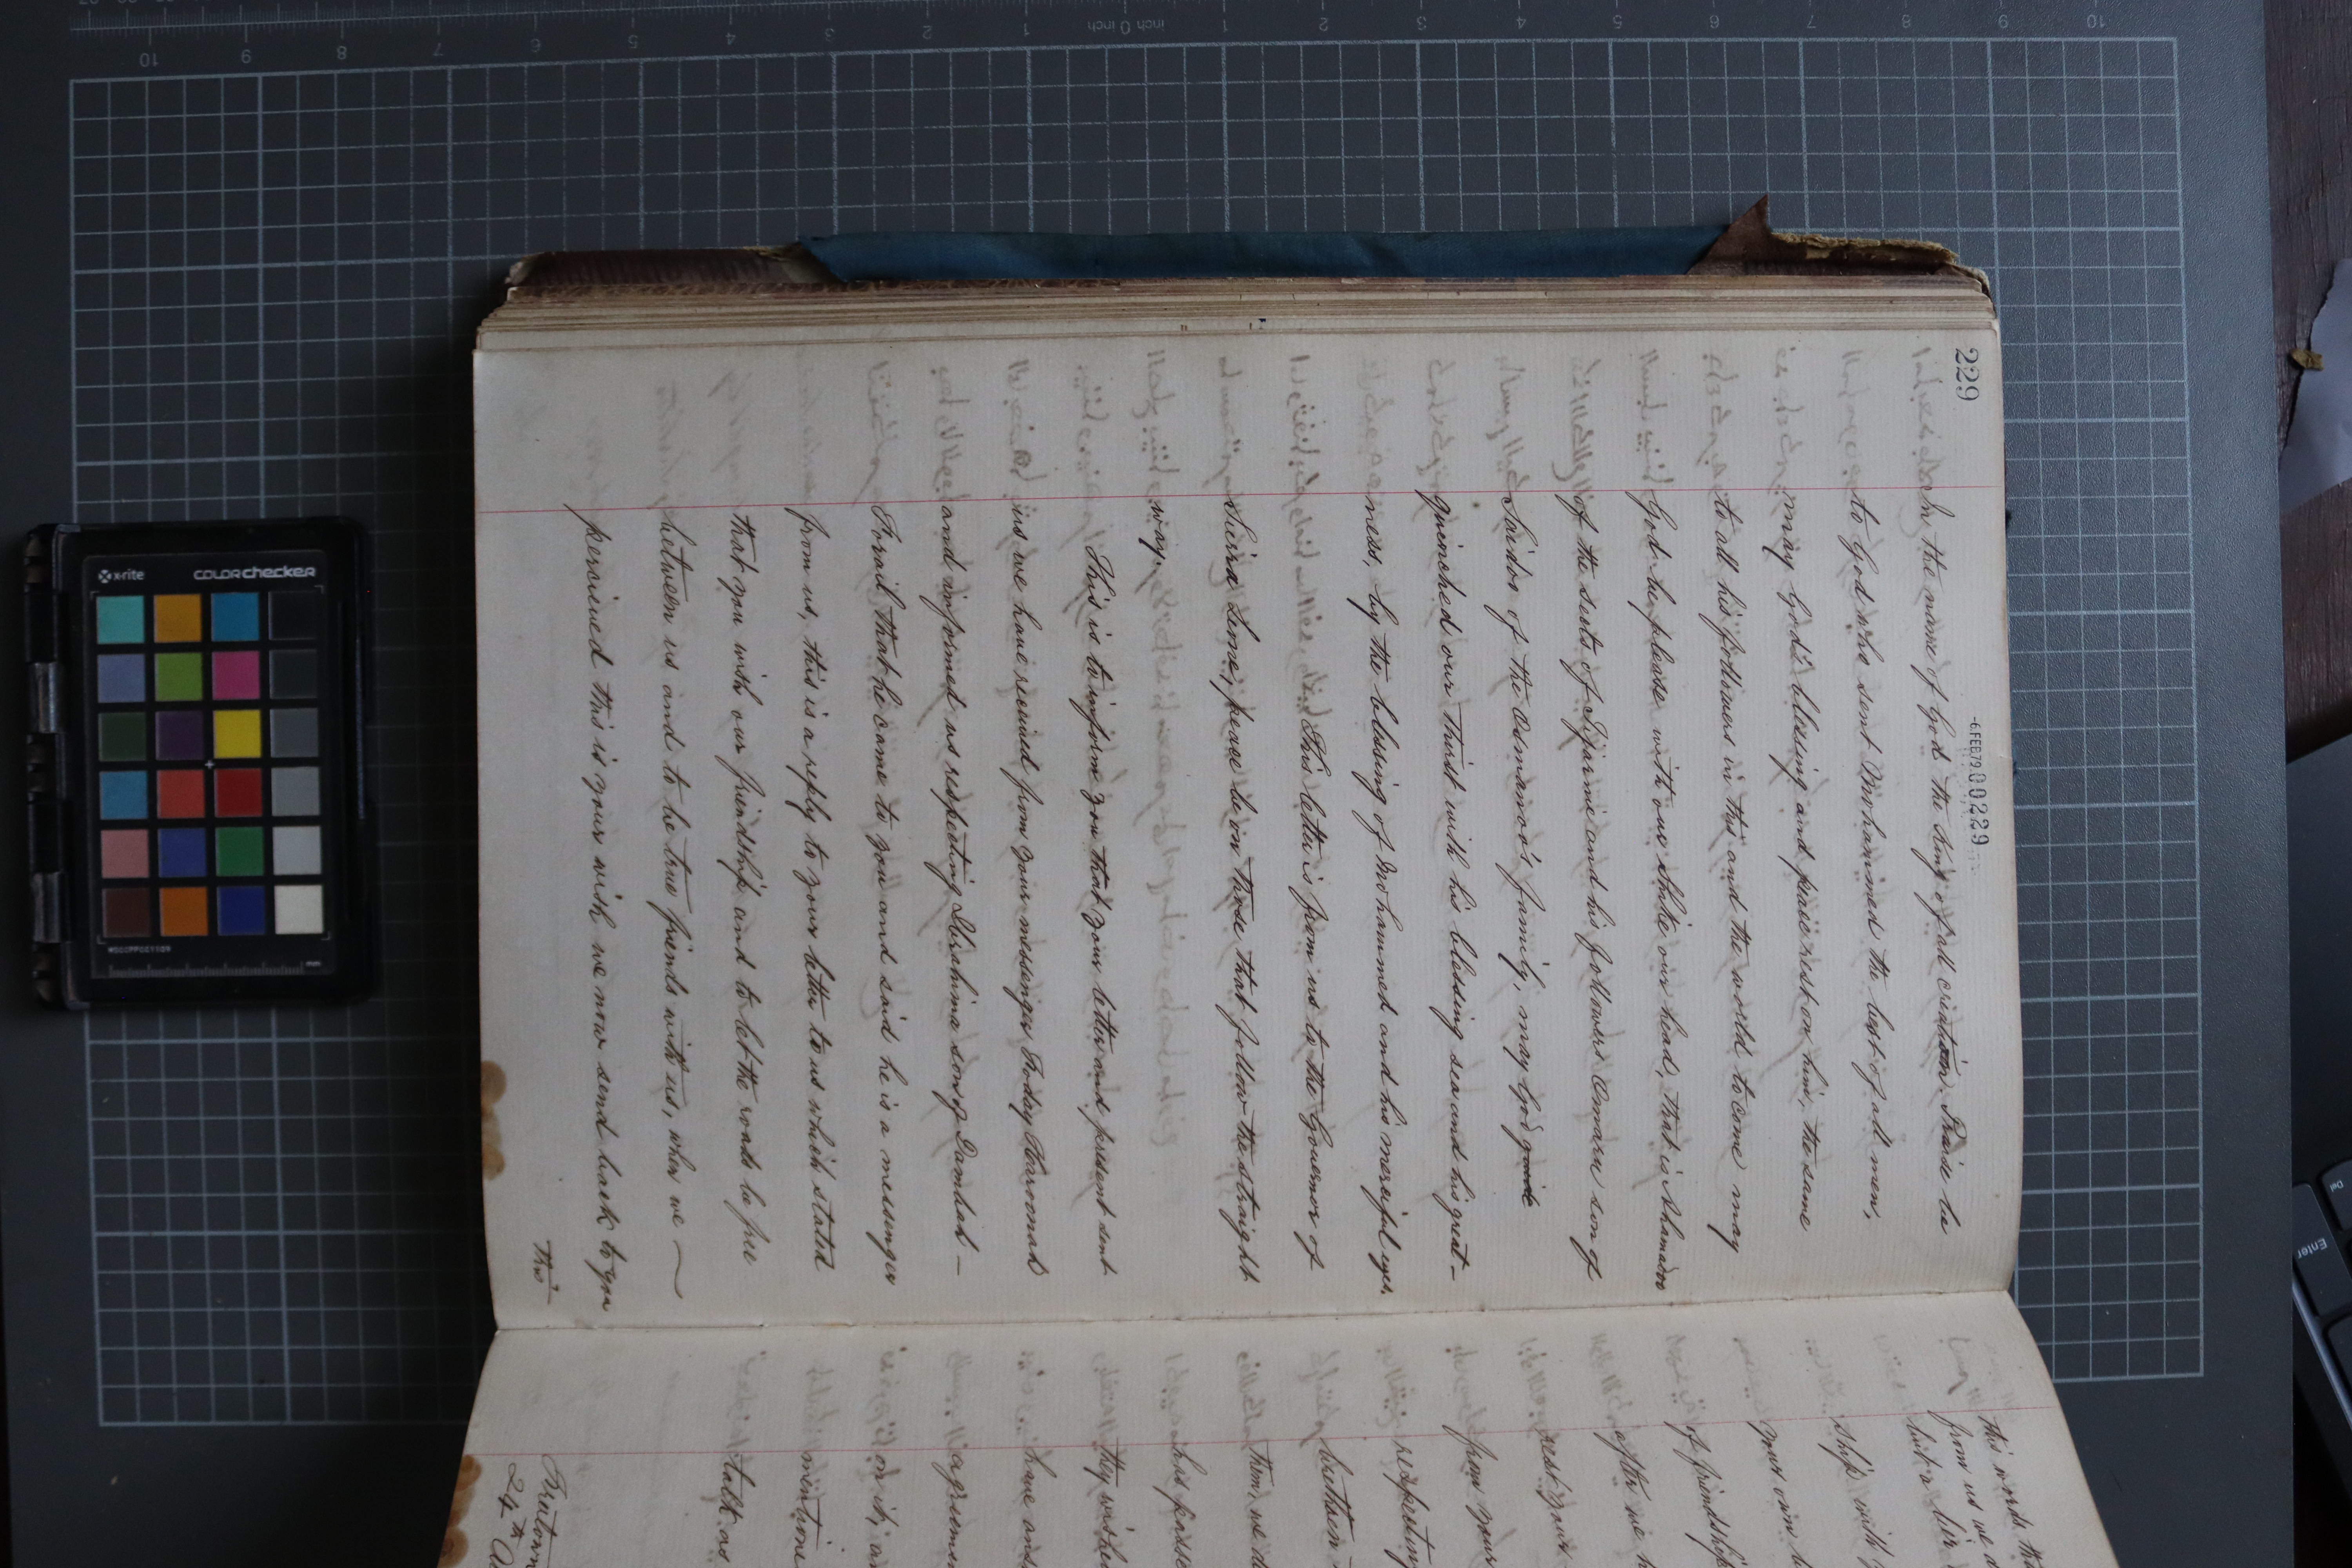 229
-6 FEB 79 00229
In the name of God the King of all creation. Praise be
to God who sent Mohammed the last of all men,
may God's blessing and peace rest on him, the same
to all his followers in this and the world to come may
God be please with our Shike our head, that is Ahamadoo
of the sects of Tijanine and his followers Omaru son of
Saidoo of the Asmanoo's family, may God guide
quinched our thirst with his blessing sea and his great-
ness, by the blessing of Mohammed and his merciful eyes.
This letter is from us to the Governor of
Sierra Leone, peace be on those that follow the straight
way.
This is to inform you that your letter and present sent
us we have received from your messenger Foday
and informed us respecting Ibrahima son of
that he came to you and said he is a messenger
from us, this is a reply to your letter to us which stated
that you wish our friendship and to let the roads be free
between us and to be true friends with us, when we
perceived this is your wish we now send back to you
This
this words
from us we
but a
ship with
your own
of friendship
after we
rest your
from your
respecting
brethren
them, we
his
they wishe
have
agreemen
on it,
mentione
talk
Freetown
24th
x-rite
colorchecker
MSCCPPCC1109
mm
10 9 8 7 6 5 4 3 2 1 inch 0 inch 1 2 3 4 5 6 7 8 9 10
Enter
Del